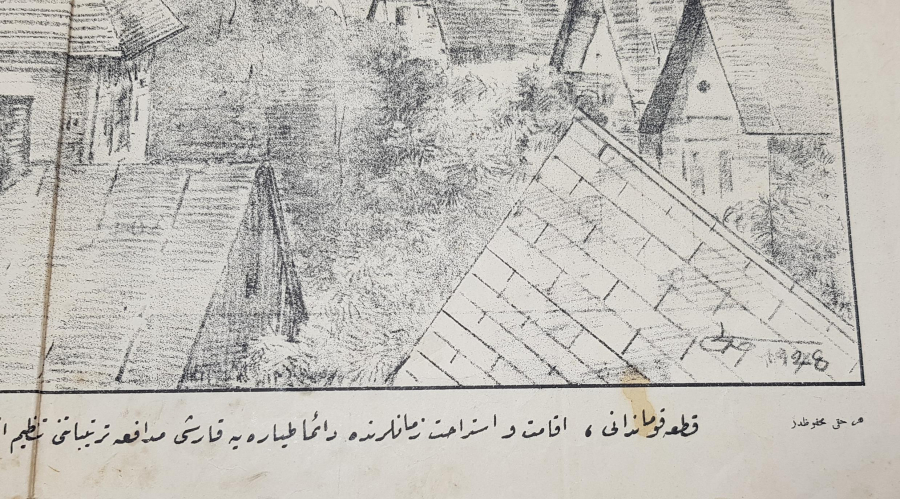 1928
هر حقى محفوظدر
قطعه قوماندانى ، اقامت و استراحت زمانلرنده دائما طياره يه قارشى مدافعه ترتيباتنى تنظيم